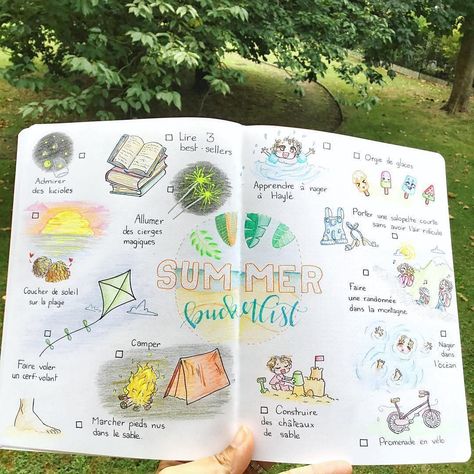 Admirer
des lucioles
Lire 3
best-sellers
Allumer
des cierges
magiques
Coucher de soleil
sur la plage
Faire voler
un cerf-volant
Camper
Marcher pieds nus
dans le sable.
SUMMER
bucketlist
Apprendre à nager
à Haylé
Orgie de glaces
Porter une salopette courte
sans avoir l'air ridicule
Faire
une randonnée
dans la montagne
Nager
dans
l'océan
Construire
des châteaux
de sable
Promenade en vélo